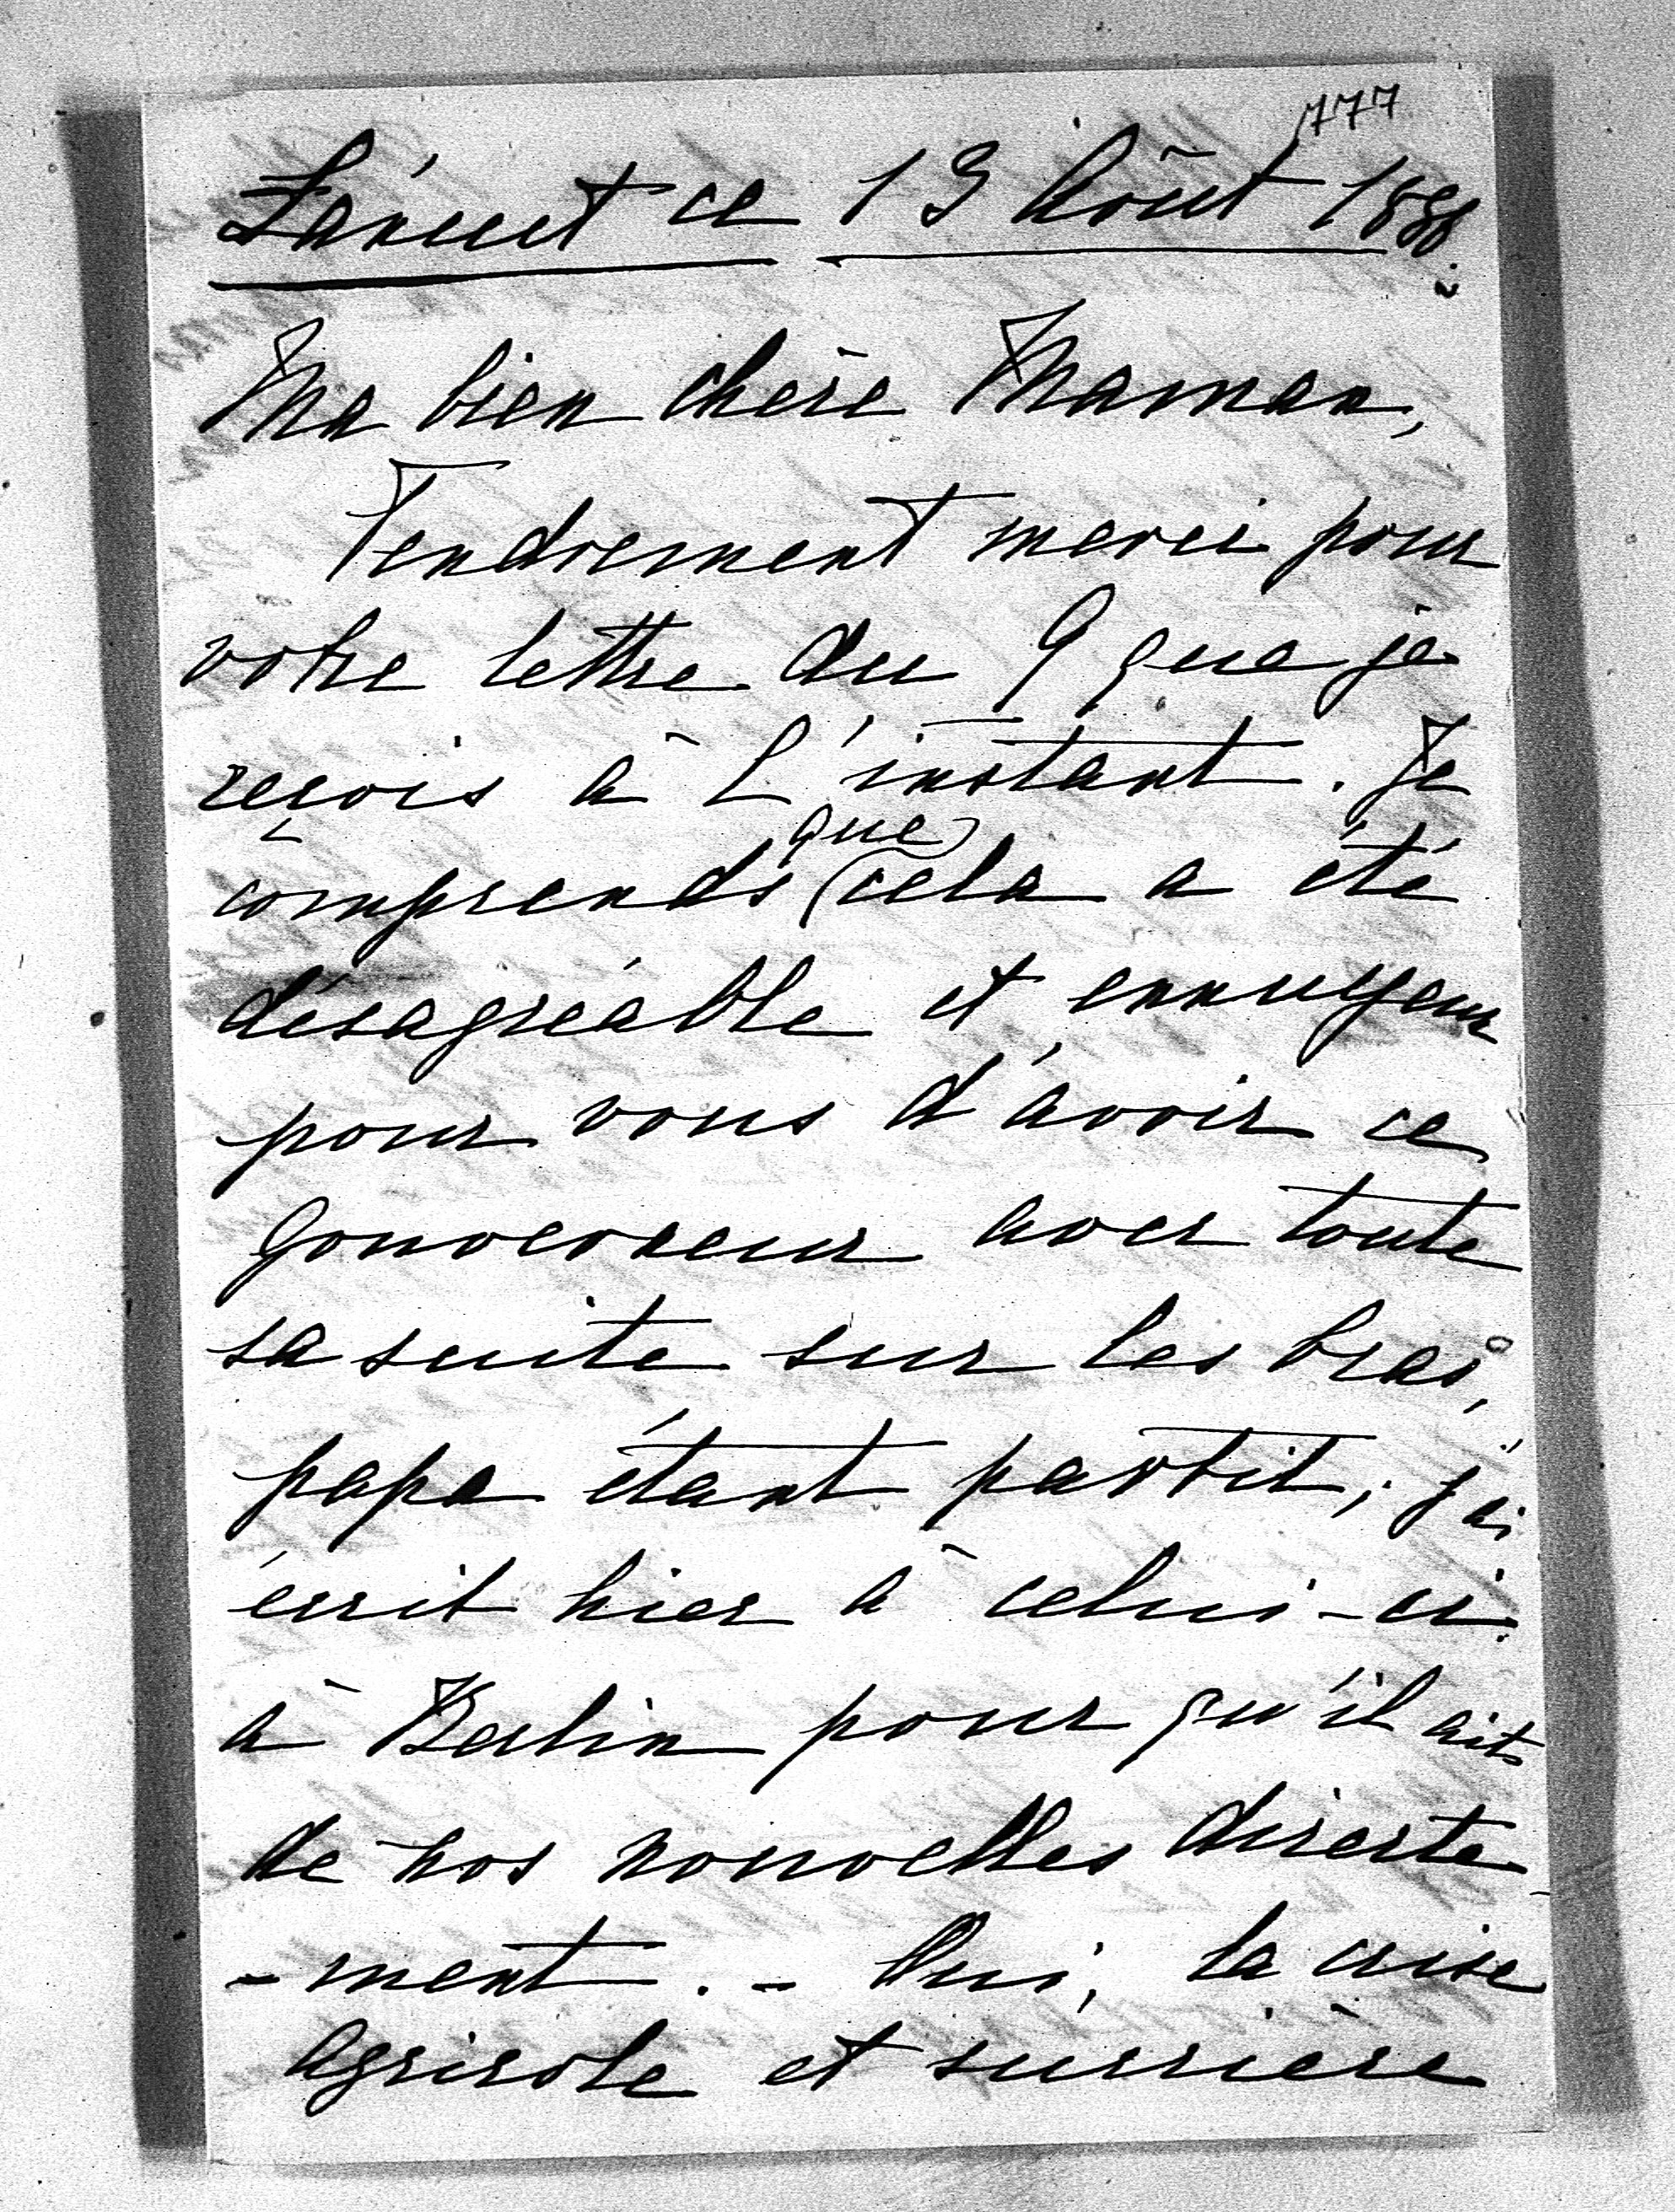 777
Łancut ce 13 Août 1888.
Ma bien chère Maman,
Tendrement merci pour
votre lettre du 9 que je
reçois à l'instant. Je
comprends que cela a été
désagréable et ennuyeux
pour vous d'avoir ce
Gouverneur avec toute
sa suite sur les bras,
papa étant partit; j'ai
écrit hier à celui-ci
à Berlin pour qu'il ait
de nos nouvelles directe-
-ment. - Oui, la crise
agricole et sucrière